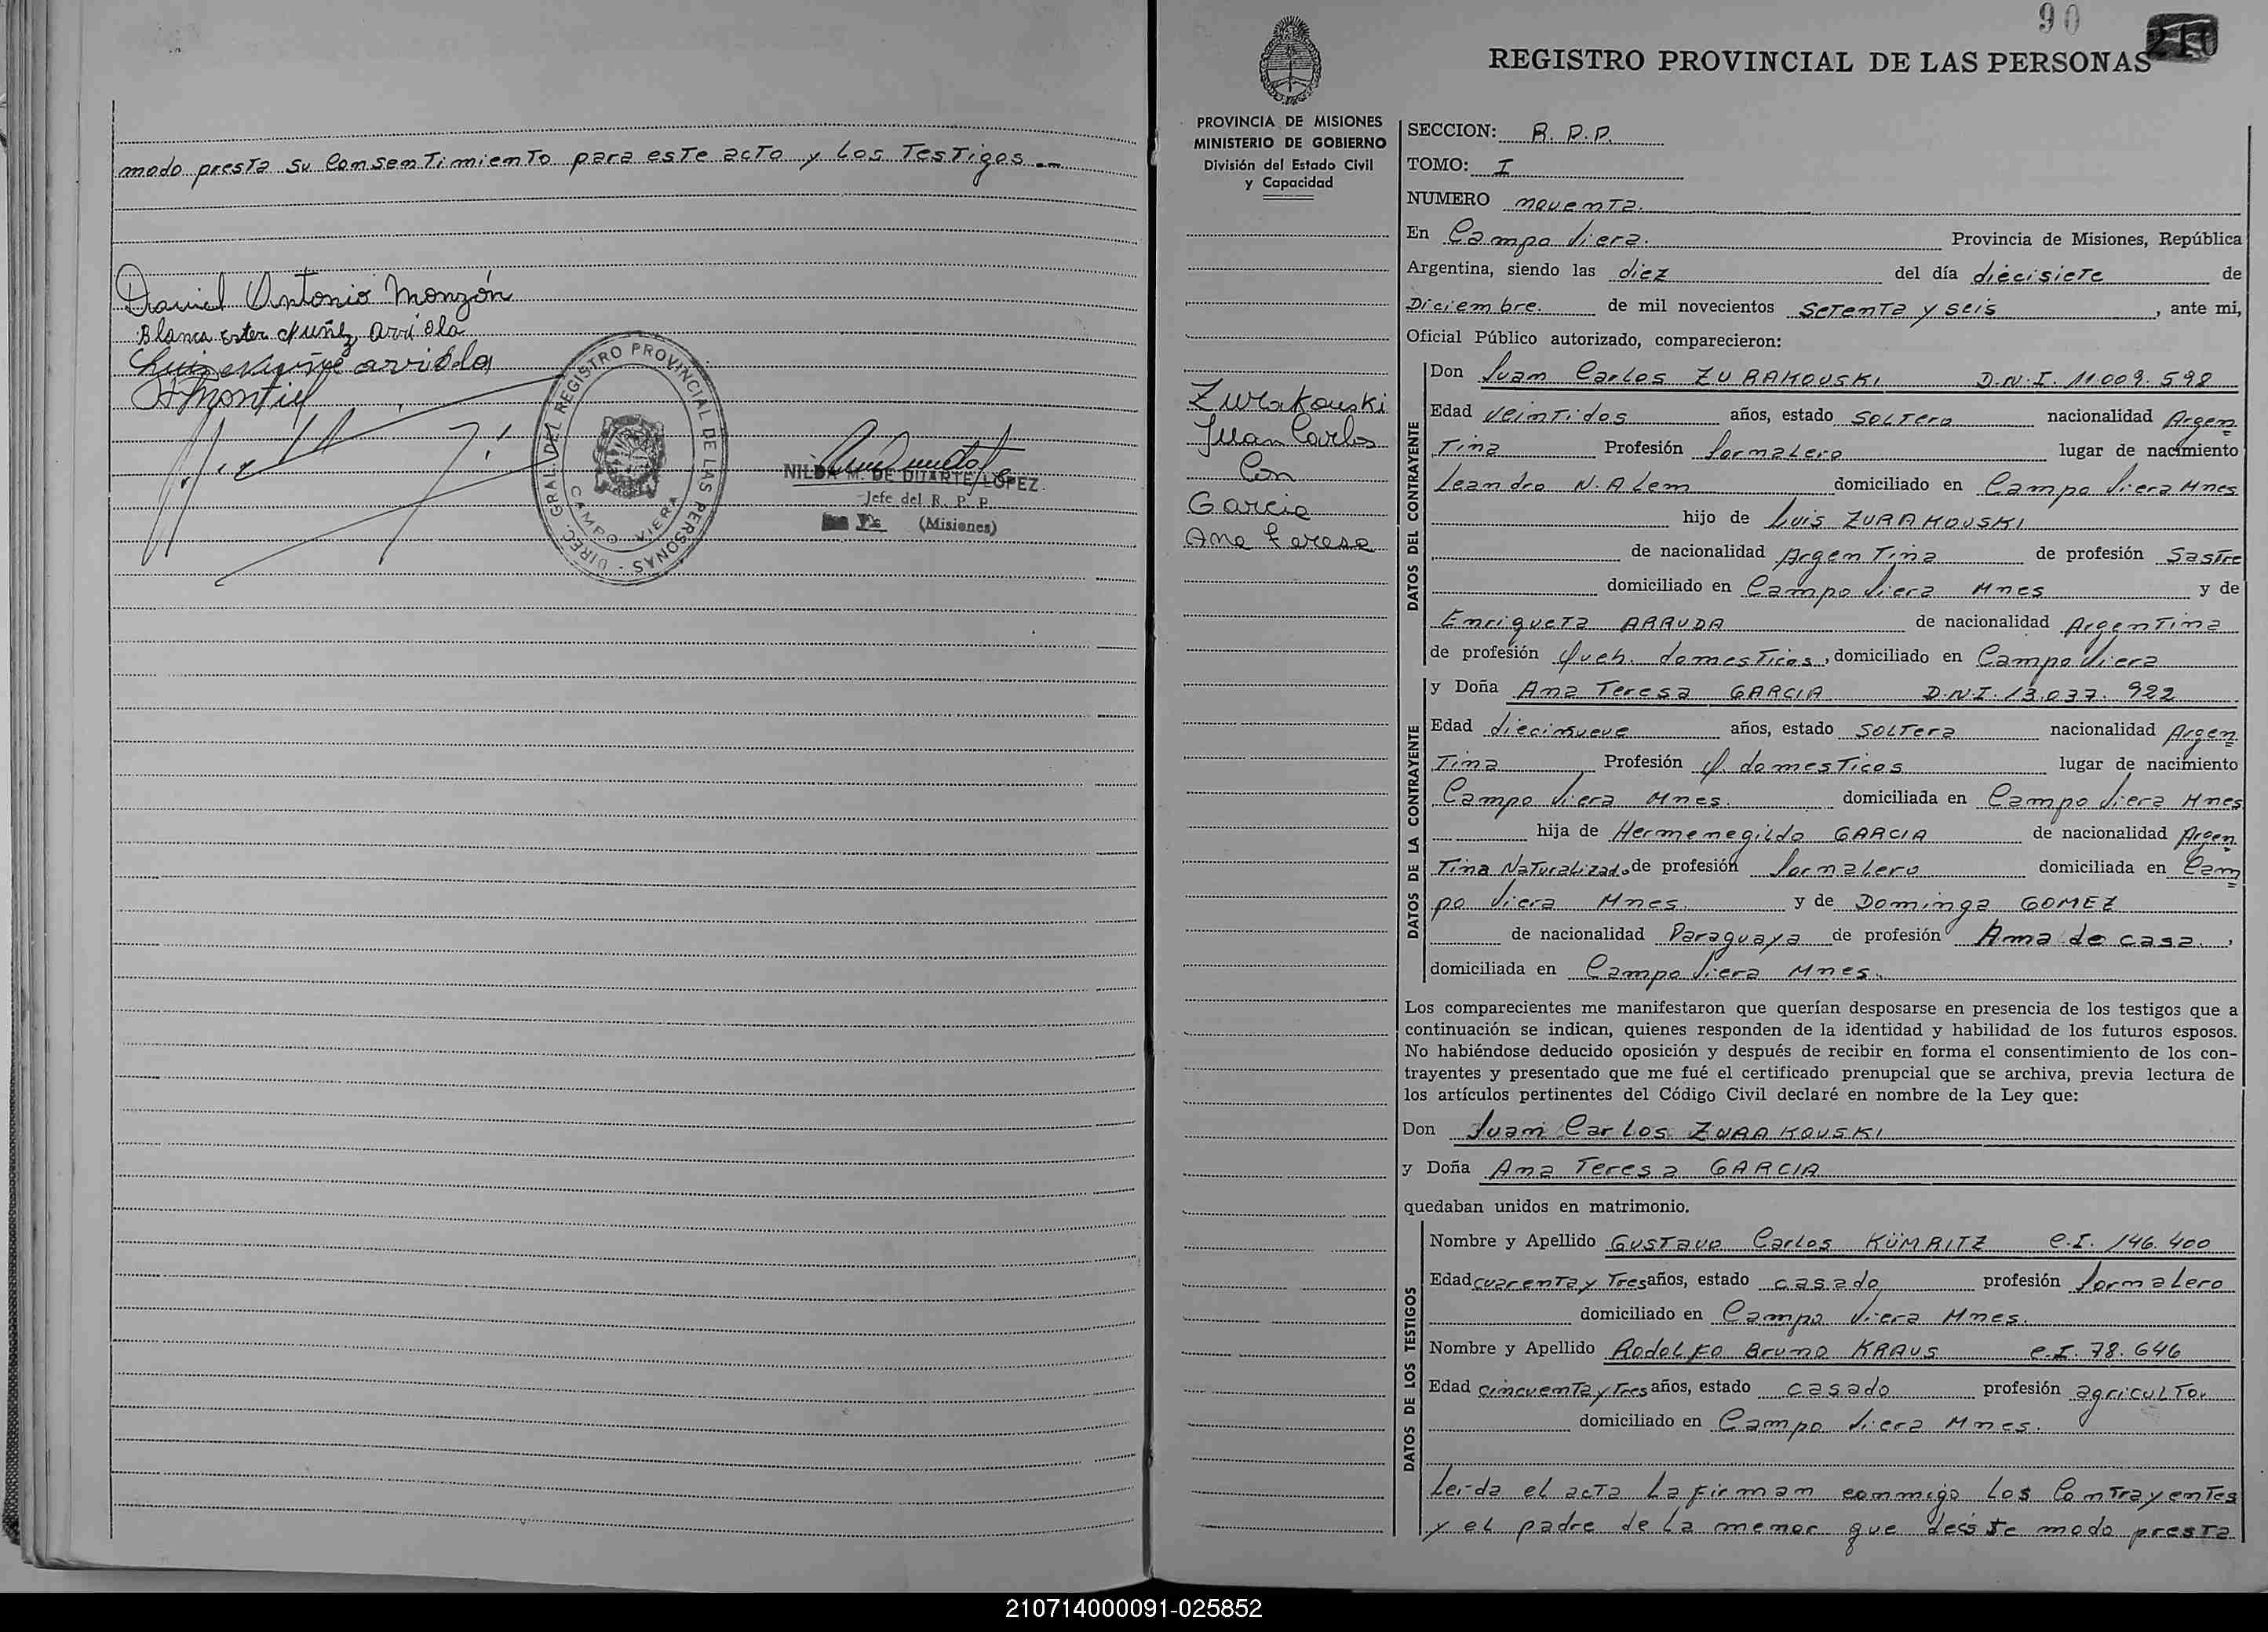 modo presta su Consentimiento para este acto y los Testigos.--
Daniel Antonio Monzón
Blanca Ester Nuñez Arriola
Luis Nuñez arriola
Montiel
DIREC. GRAL. DEL REGISTRO PROVINCIAL DE LAS PERSONAS -
CAMPO VIERA
NILDA M. DE DUARTE LOPEZ
Jefe del R. P. P.
(Misiones)
90
210
REGISTRO PROVINCIAL DE LAS PERSONAS
PROVINCIA DE MISIONES
MINISTERIO DE GOBIERNO
División del Estado Civil
y Capacidad
Zurakouski
Juan Carlos
Con
Garcia
Ana Teresa
SECCION: R. P. P.
TOMO: I
NUMERO noventa.
En Campo Viera. Provincia de Misiones, República
Argentina, siendo las diez del día diecisiete de
Diciembre. de mil novecientos setenta y seis, ante mi,
Oficial Público autorizado, comparecieron:
DATOS DEL CONTRAYENTE
Don Juan Carlos ZURAKOUSKI D.N.I. 11.009.592
Edad veintidos años, estado soltero nacionalidad Argen
tina Profesión Jornalero lugar de nacimiento
Leandro N. Alem domiciliado en Campo Viera Mnes
hijo de Luis ZURAKOUSKI
de nacionalidad Argentina de profesión Sastre
domiciliado en Campo Viera Mnes y de
Enriqueta ARRUDA de nacionalidad Argentina
de profesión Queh. domesticos, domiciliado en Campo Viera
DATOS DE LA CONTRAYENTE
y Doña Ana Teresa GARCIA D.N.I. 13.037.922
Edad diecinueve años, estado soltera nacionalidad Argen
tina Profesión Q. domesticos lugar de nacimiento
Campo Viera Mnes. domiciliada en Campo Viera Mnes
hija de Hermenegildo GARCIA de nacionalidad Argen
tina Naturalizado de profesión Jornalero domiciliada en Cam
po Viera Mnes. y de Dominga GOMEZ
de nacionalidad Paraguaya de profesión Ama de casa.,
domiciliada en Campo Viera Mnes.
Los comparecientes me manifestaron que querían desposarse en presencia de los testigos que a
continuación se indican, quienes responden de la identidad y habilidad de los futuros esposos.
No habiéndose deducido oposición y después de recibir en forma el consentimiento de los con-
trayentes y presentado que me fué el certificado prenupcial que se archiva, previa lectura de
los artículos pertinentes del Código Civil declaré en nombre de la Ley que:
Don Juan Carlos ZURAKOUSKI
y Doña Ana Teresa GARCIA
quedaban unidos en matrimonio.
DATOS DE LOS TESTIGOS
Nombre y Apellido Gustavo Carlos KÜMRITZ C.I. 146.400
Edad cuarenta y tres años, estado casado profesión Jornalero
domiciliado en Campo Viera Mnes.
Nombre y Apellido Rodolfo Bruno KRAUS C.I. 78.646
Edad cincuenta y tres años, estado casado profesión agricultor
domiciliado en Campo Viera Mnes.
Leida el acta la firman conmigo los Contrayentes
y el padre de la menor que de este modo presta
210714000091-025852